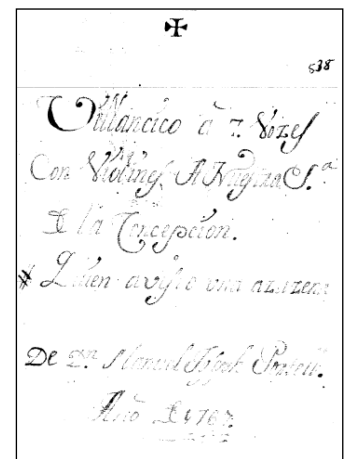 ✠
538
Villancico a 7. Vozes
Con Violines, A Nuestra S.ª
De la Concepcion.
Quien a visto una azuzena
De Dn. Manuel
Año De 1767.